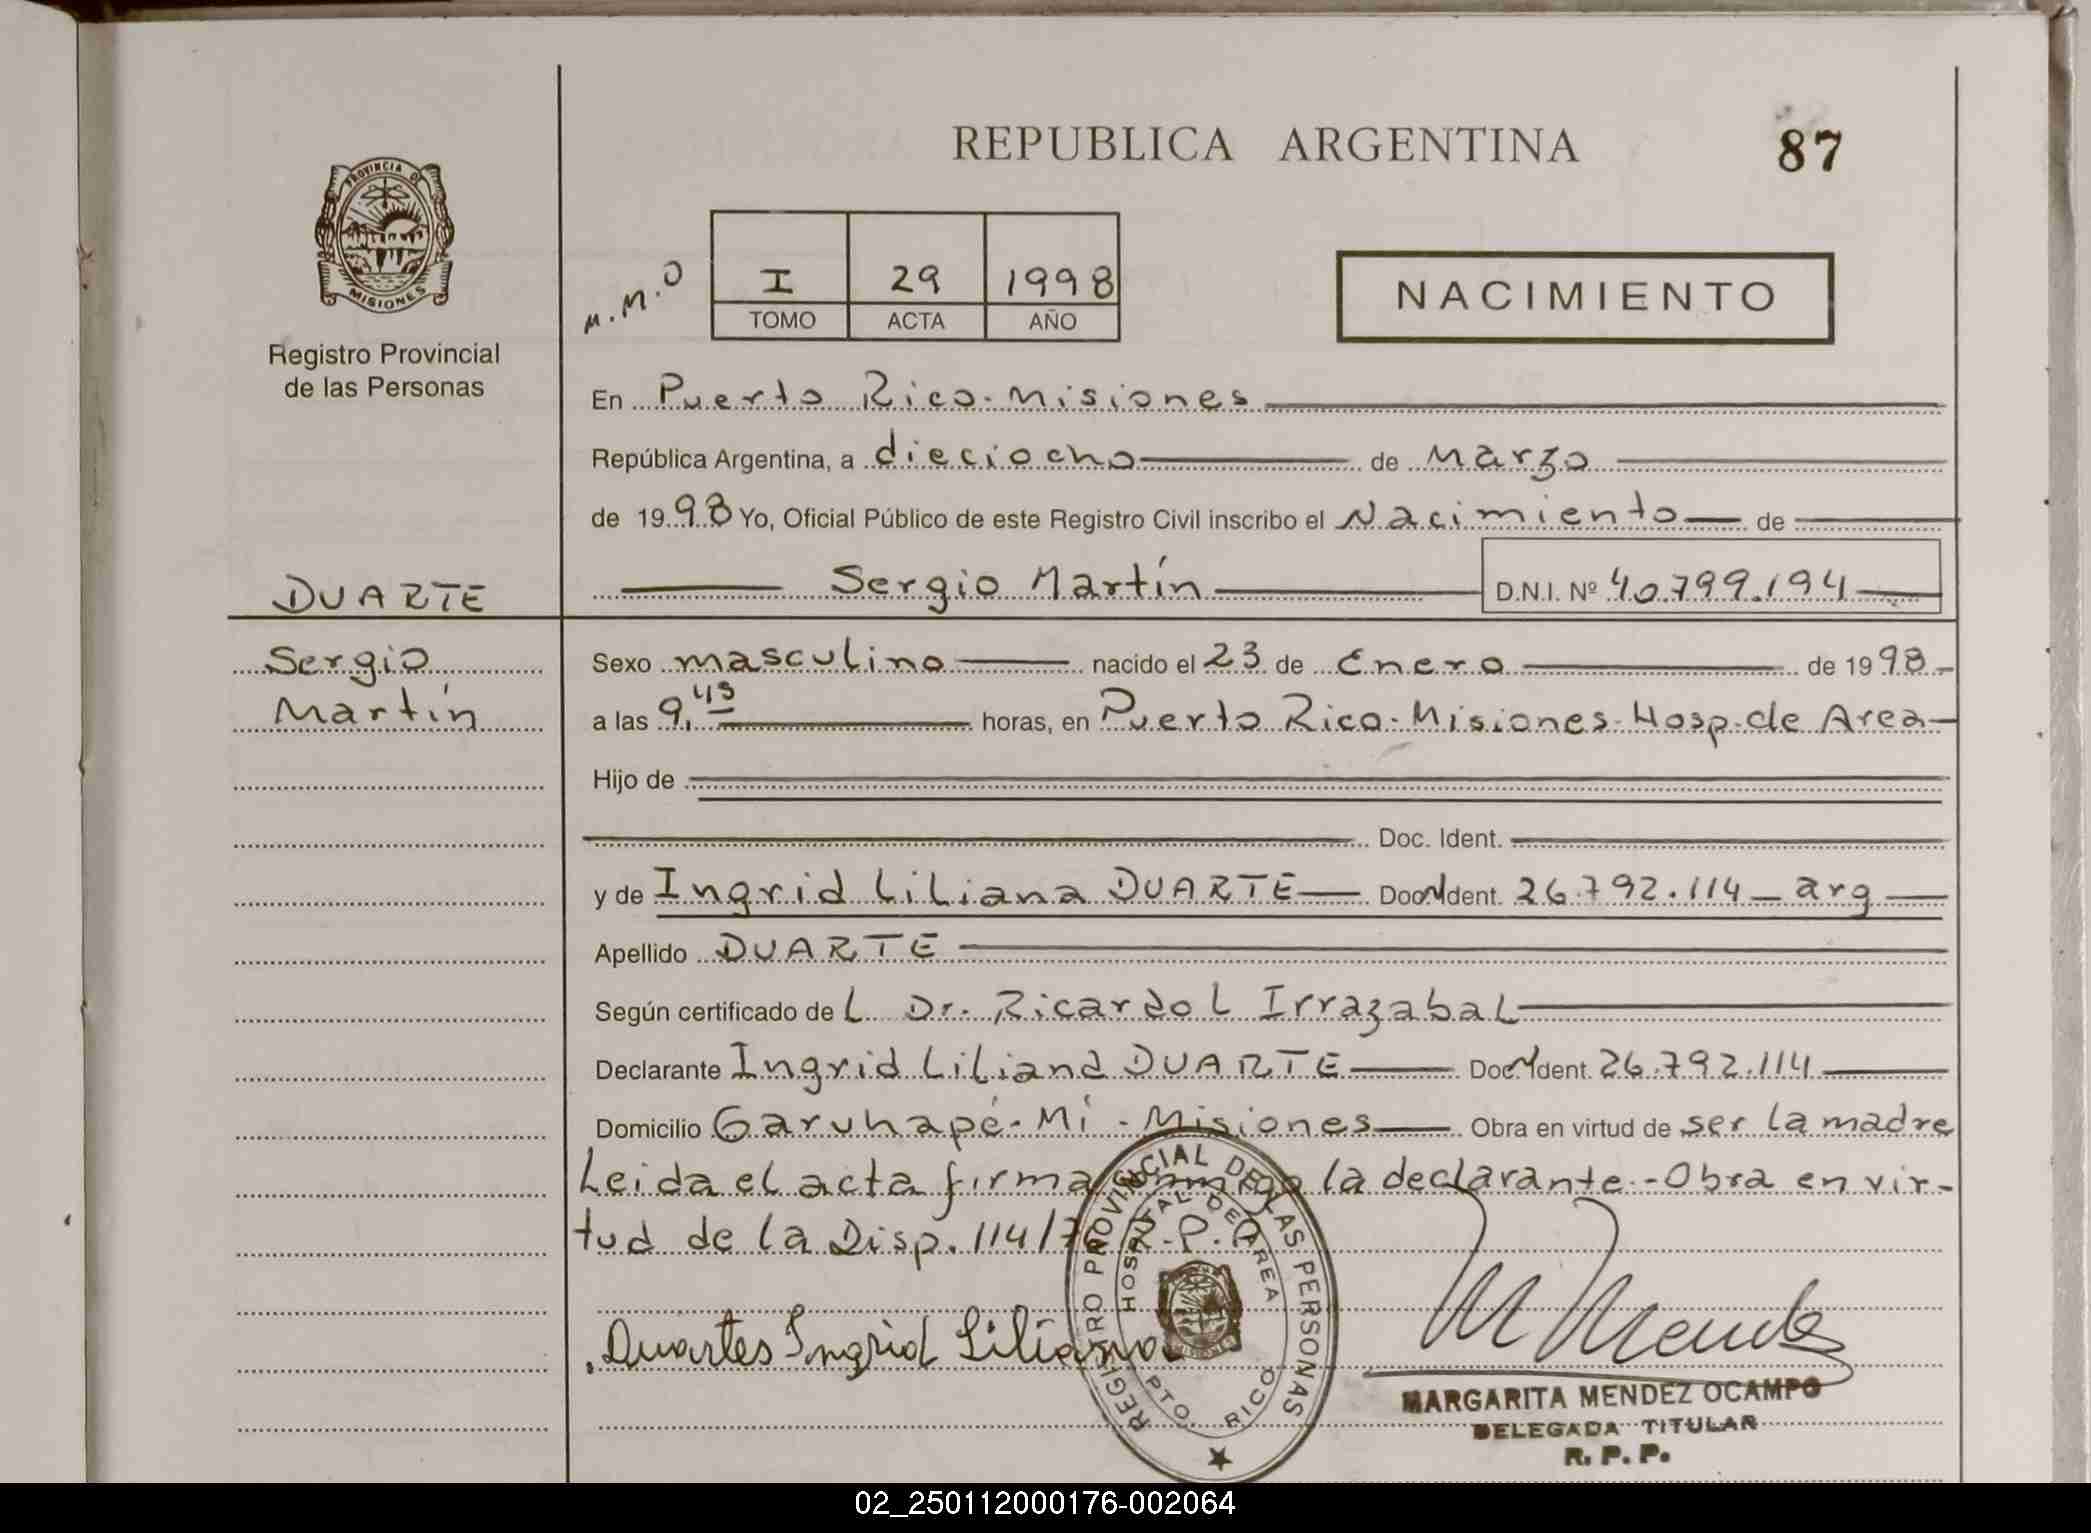 REPUBLICA ARGENTINA
87
PROVINCIA DE
MISIONES
Registro Provincial
de las Personas
M.M.O
I 29 1998
TOMO ACTA AÑO
NACIMIENTO
En Puerto Rico. Misiones
República Argentina, a dieciocho de Marzo
de 1998 Yo, Oficial Público de este Registro Civil inscribo el Nacimiento de
DUARTE
Sergio Martín D.N.I. Nº 40.799.194
Sergio
Martín
Sexo masculino nacido el 23 de Enero de 1998-
a las 9,45 horas, en Puerto Rico. Misiones. Hosp. de Area-
Hijo de
Doc. Ident.
y de Ingrid Liliana DUARTE Doc. Ident. 26.792.114 - arg
Apellido DUARTE
Según certificado del Dr. Ricardo L Irrazabal
Declarante Ingrid Liliana DUARTE Doc. Ident. 26.792.114
Domicilio Garuhapé-Mí - Misiones Obra en virtud de ser la madre
Leida el acta firma la declarante.-Obra en vir-
tud de la Disp. 114/7 R.P.P.
Duartes Ingrid Liliana
REGISTRO PROVINCIAL DE LAS PERSONAS
HOSPITAL DE AREA
PTO. RICO
M Mendez
MARGARITA MENDEZ OCAMPO
DELEGADA TITULAR
R. P. P.
02_250112000176-002064